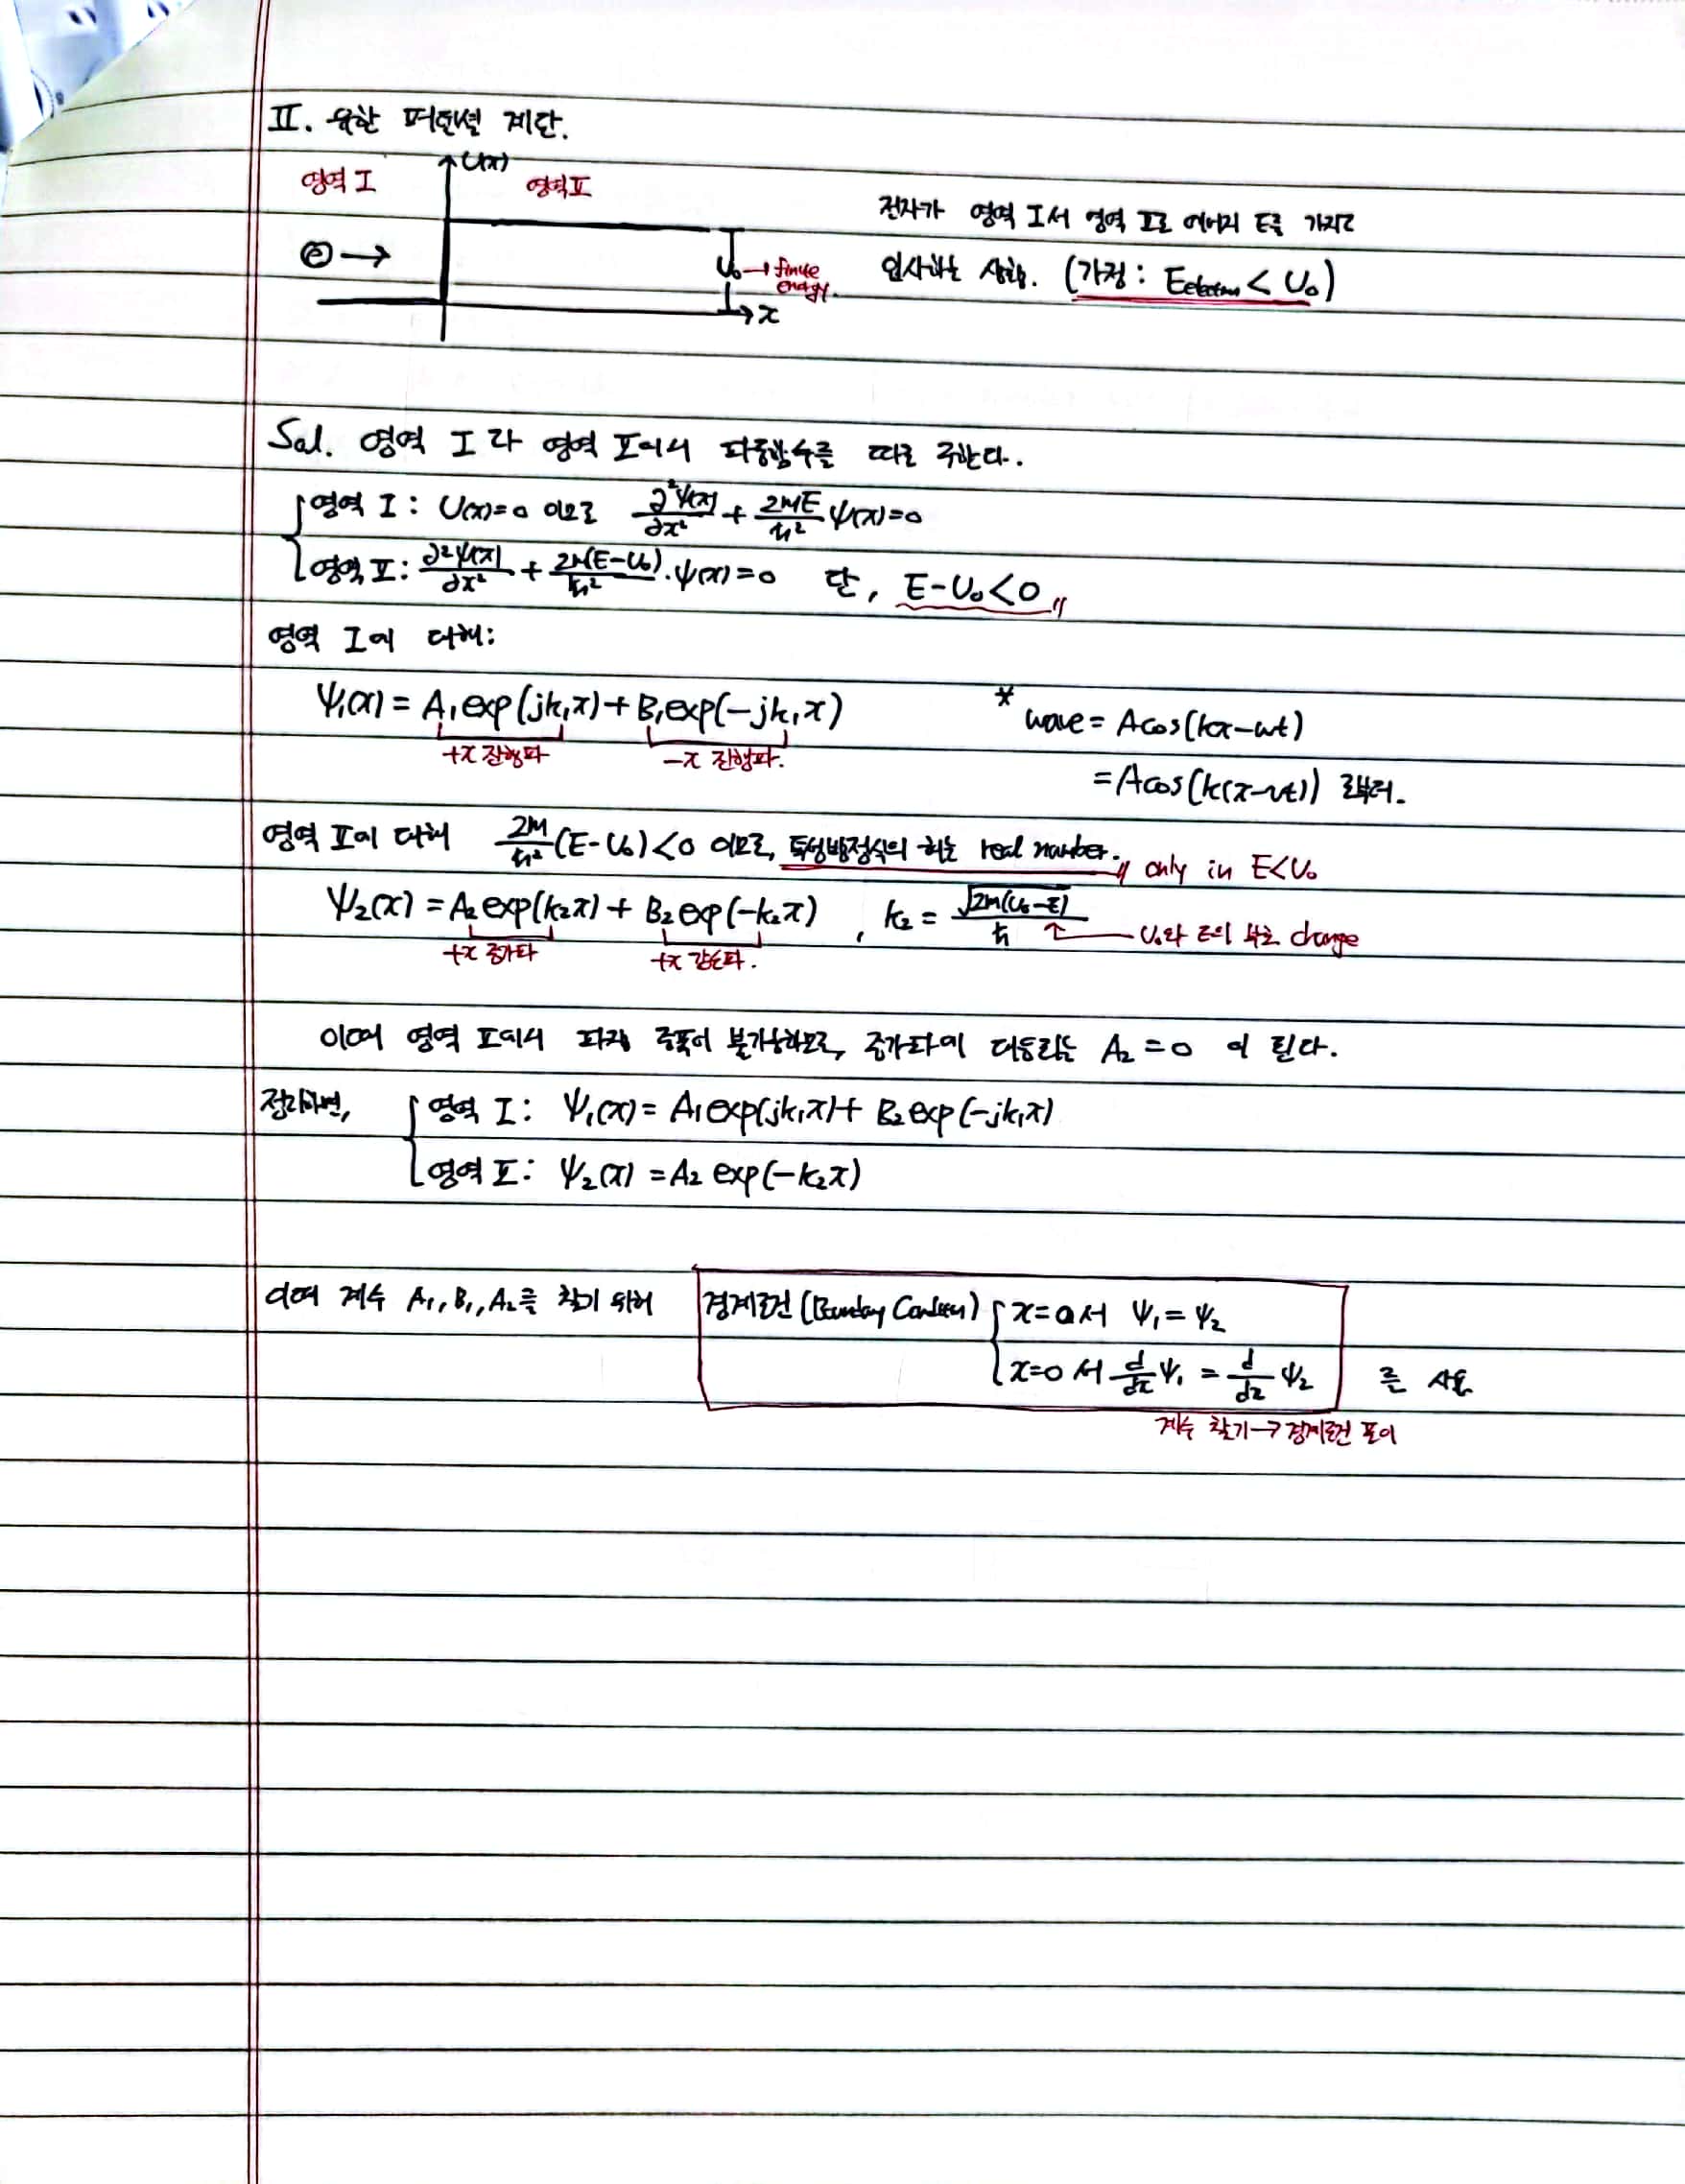 II. 유한 퍼텐셜 계단.
U(x)
영역 I 영역 II
e →
U₀ → finite energy.
x
전자가 영역 I서 영역 II로 에너지 E를 가지고
입사하는 상황. (가정: E_electron < U₀)
Sol. 영역 I과 영역 II에서 파동함수를 따로 구한다.
영역 I: U(x)=0 이므로 ∂²ψ(x)/∂x² + 2mE/ħ² ψ(x)=0
영역 II: ∂²ψ(x)/∂x² + 2m(E-U₀)/ħ² · ψ(x)=0 단, E-U₀<0
영역 I에 대해:
ψ₁(x) = A₁exp(jk₁x) + B₁exp(-jk₁x)
+x 진행파 -x 진행파.
* wave = Acos(kx-wt)
= Acos(k(x-vt)) 로부터.
영역 II에 대해 2m/ħ² (E-U₀)<0 이므로, 특성방정식의 해는 real number. only in E<U₀
ψ₂(x) = A₂exp(k₂x) + B₂exp(-k₂x) , k₂ = √2m(U₀-E)/ħ ← U₀와 E의 부호 change
+x 증가파 +x 감소파.
이때 영역 II에서 파장 증폭이 불가능하므로, 증가파에 대응되는 A₂=0 이 된다.
정리하면, 영역 I: ψ₁(x) = A₁exp(jk₁x) + B₂exp(-jk₁x)
영역 II: ψ₂(x) = A₂ exp(-k₂x)
이때 계수 A₁, B₁, A₂를 찾기 위해 경계조건 (Boundary Condition) x=0서 ψ₁=ψ₂
x=0서 d/dx ψ₁ = d/dx ψ₂ 를 사용
계수 찾기→경계조건 풀이